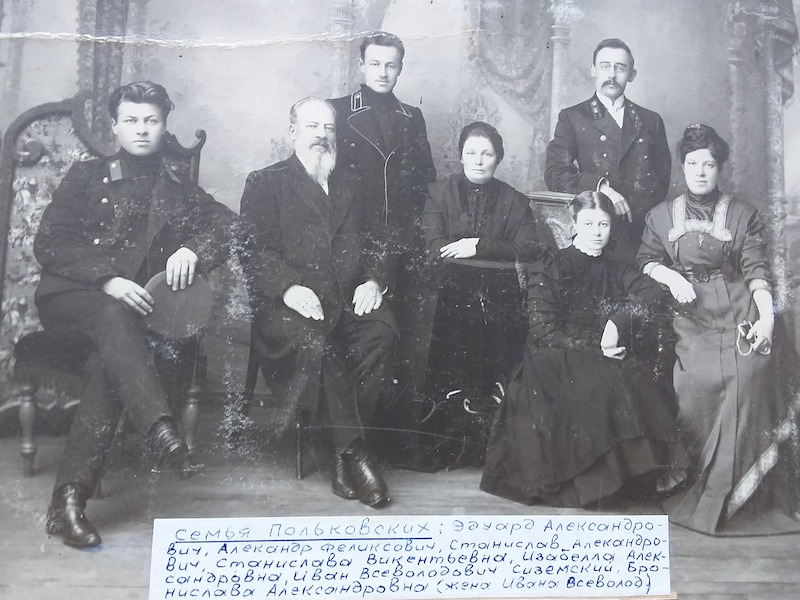 Семья Польковских: Эдуард Александро-
вич, Алекандр Феликсович, Станислав Алекандро-
вич, Станислава Викентьевна, Изабелла Алек-
сандровна, Иван Всеволодович Сиземский, Бро-
нислава Александровна (жена Ивана Всеволод)